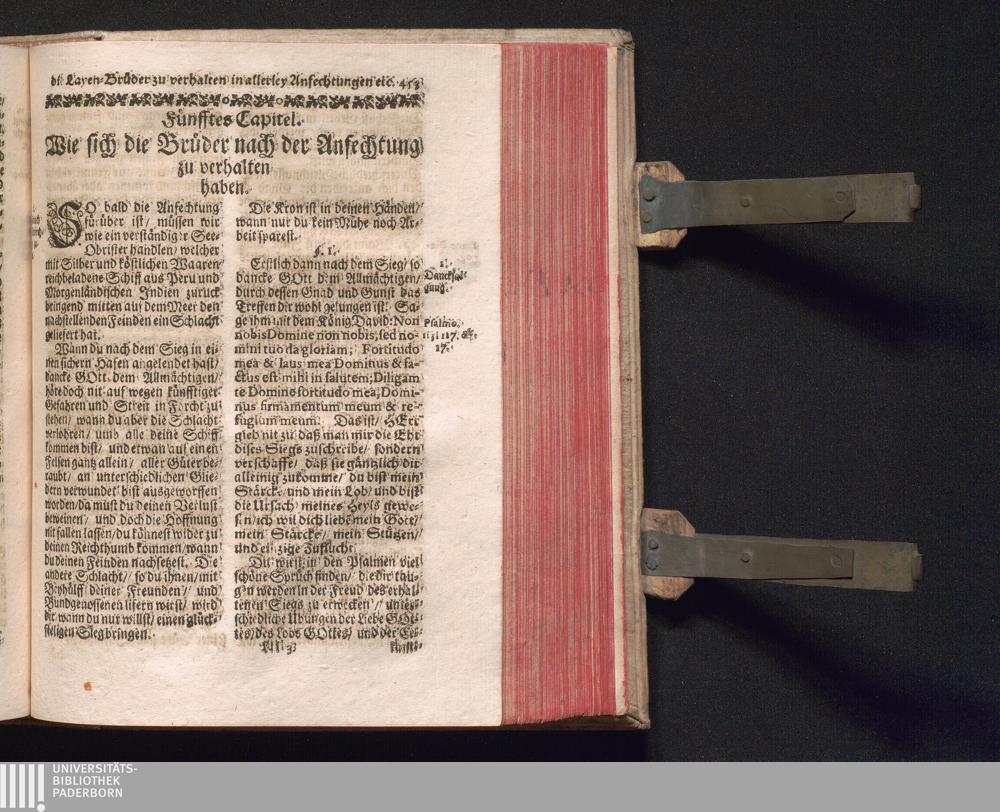 die Layen-Brüder zu verhalten in allerley Anfechtungen etc. 453
Fünfftes Capitel.
Wie sich die Brüder nach der Anfechtung
zu verhalten
haben.
SO bald die Anfechtung
fürüber ist/ müssen wir
wie ein verständiger See-
Obrister handlen/ welcher
mit Silber und köstlichen Waaren
reichbeladene Schiff aus Peru und
Morgenländischen Indien zuruck
bringend mitten auf dem Meer den
nachstellenden Feinden ein Schlacht
geliefert hat.
Wann du nach dem Sieg in ei-
nen sichern Hafen angelendet hast/
dancke GOtt dem Allmächtigen/
höre doch nit auf wegen künfftiger
Gefahren und Streit in Forcht zu
stehen/ wann du aber die Schlacht
verlohren/ und alle deine Schiff
kommen bist/ und etwan auf einen
Felsen gantz allein/ aller Güter be-
raubt/ an unterschiedlichen Glie-
dern verwundet bist ausgeworffen
worden/ da must du deinen Verlust
beweinen/ und doch die Hoffnung
nit fallen lassen/ du könnest wider zu
deinen Reichthumb kommen/ wann
du deinen Feinden nachsetzest. Die
andere Schlacht/ so du ihnen/ mit
Beyhülff deiner Freunden/ und
Bundgenossenen lifern wirst/ wird
dir wann du nur willst/ einen glück-
seeligen Sieg bringen.
Die Kron ist in deinen Händen/
wann nur du kein Mühe noch Ar-
beit sparest.
§. 1.
Erstlich dann nach dem Sieg/ so
dancke GOtt dem Allmächtigen/
durch dessen Gnad und Gunst das
Treffen dir wohl gelungen ist. Sa-
ge ihm mit dem König David: Non
nobis Domine non nobis, sed no-
mini tuo da gloriam; Fortitudo
mea & laus mea Dominus & fa-
ctus est mihi in salutem; Diligam
te Domine fortitudo mea, Domi-
nus firmamentum meum & re-
fugium meum. Das ist/ HErr
gieb nit zu daß man mir die Ehr
dises Siegs zuschreibe/ sondern
verschaffe/ daß sie gäntzlich dir
alleinig zukomme/ du bist mein
Stärcke und mein Lob/ und bist
die Ursach meines Heyls gewe-
sen/ ich wil dich liebe mein Gott/
mein Stärcke/ mein Stützen/
und eintzige Zuflucht.
Du wirst in den Psalmen viel
schöne Sprüch finden/ die dir tau-
gen werden in der Freud des erhal-
tenen Siegs zu erwecken/ unter-
schidliche Übungen der Liebe GOt-
tes/ des Lobs GOttes/ und der
1.
Dancksa-
gung.
Psalmo.
113. 117. &
17.
UNIVERSITÄTS-
BIBLIOTHEK
PADERBORN